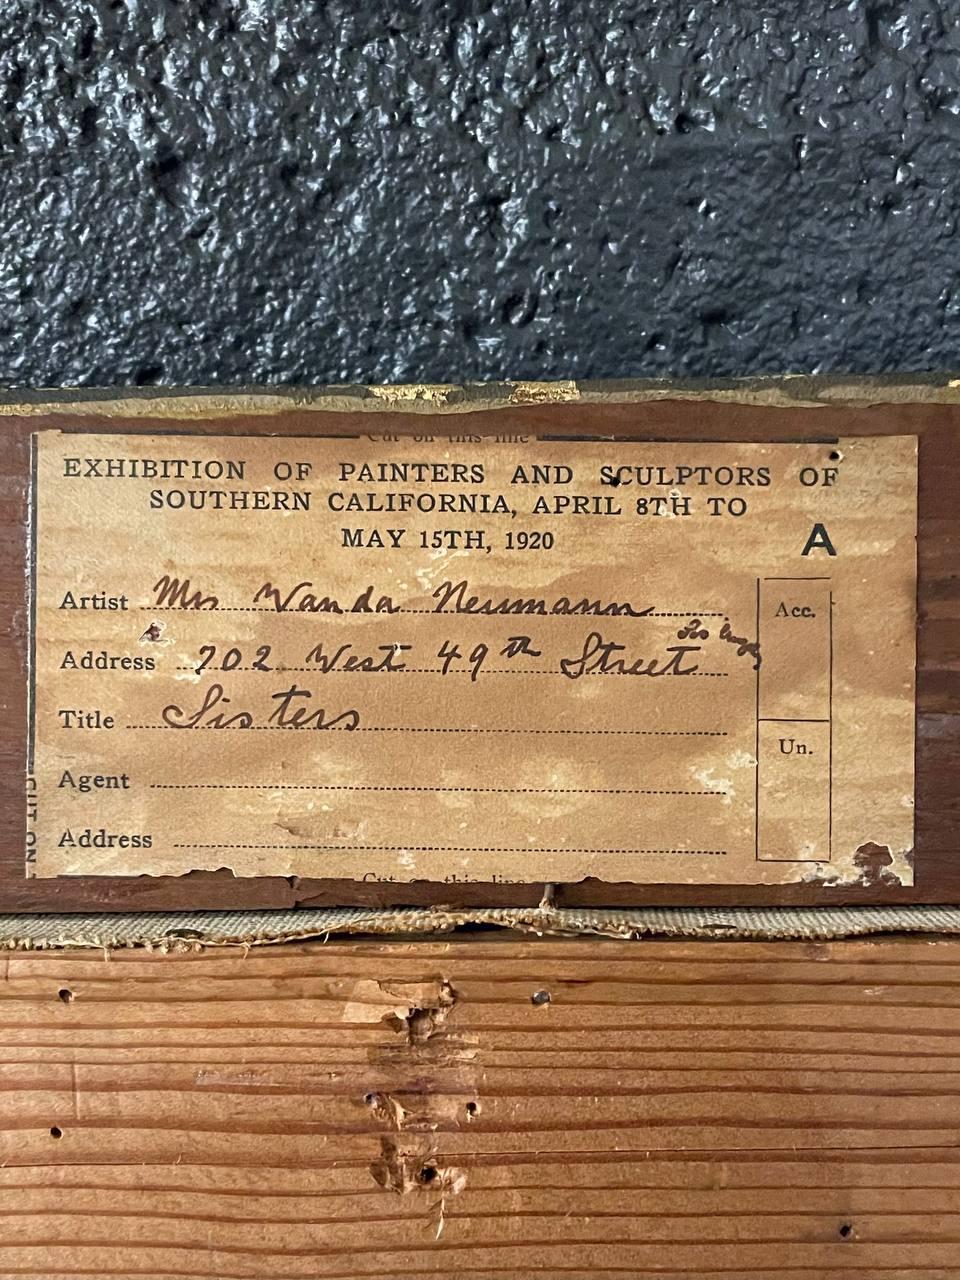 Cut on this line
EXHIBITION OF PAINTERS AND SCULPTORS OF
SOUTHERN CALIFORNIA, APRIL 8TH TO
MAY 15TH, 1920
A
Artist Mrs Wanda Neumann
Address 702 West 49th Street Los Angeles
Title Sisters
Agent
Address
Acc.
Un.
CUT ON
Cut on this line